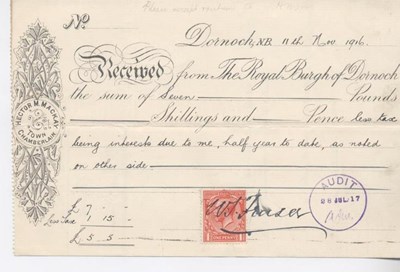 No.
Dornoch, N.B. 11th Nov. 1916.
Received from The Royal Burgh of Dornoch
the sum of Seven Pounds
Shillings and Pence less tax
being interests due to me, half year to date, as noted
on other side
HECTOR M. MACKAY
TOWN CHAMBERLAIN
£ 7 -
Less Tax 1 15 -
£ 5 5 -
W. Fraser
AUDIT
28 JUL 17